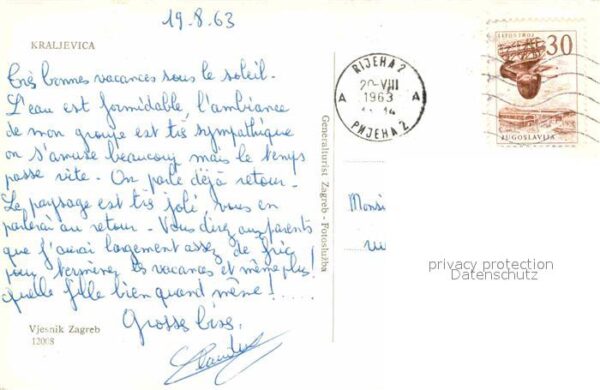 19.8.63
KRALJEVICA
Très bonnes vacances sous le soleil.
L'eau est formidable l'ambiance
de mon groupe est très sympathique
on s'amuse beaucoup mais le temps
passe vite. On parle déjà retour.
Le paysage est très joli vous en
parlerai au retour. Vous direz aux parents
que j'aurai largement assez de fric
pour terminer les vacances et même plus!
quelle fille bien quand même!.....
Grosses bises.
Vjesnik Zagreb
12008
Generalturist Zagreb - Fotoslužba
RIJEKA 2
20-VIII
1963
A A
РИЈЕКА 2
LITOSTROJ
30
JUGOSLAVIJA
Monsi
privacy protection
Datenschutz